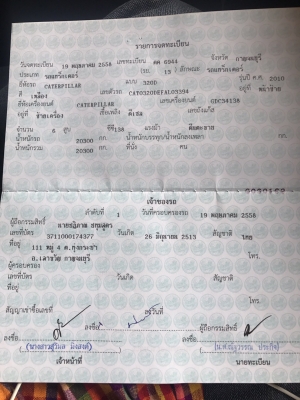 รายการจดทะเบียน
วันจดทะเบียน 19 พฤษภาคม 2558 เลขทะเบียน ตค 6944 จังหวัด กาญจนบุรี
ประเภท รถแทรกเตอร์ (รย. 13 ) ลักษณะ รถแทรกเตอร์
ยี่ห้อรถ CATERPILLAR แบบ 320D รุ่นปี ค.ศ. 2010
สี เหลือง เลขตัวรถ CAT0320DEFAL03394 อยู่ที่
ยี่ห้อเครื่องยนต์ CATERPILLAR เลขเครื่องยนต์ GDC34138
อยู่ที่ ข้างเครื่อง เชื้อเพลิง ดีเซล เลขถังแก๊ส
จำนวน 6 สูบ ซีซี 138 แรงม้า
น้ำหนักรถ 20300 กก. น้ำหนักบรรทุก/น้ำหนักลงเพลา กก.
น้ำหนักรวม 20300 กก. ที่นั่ง คน
เจ้าของรถ
ลำดับที่ 1 วันที่ครอบครองรถ 19 พฤษภาคม 2558
ผู้ถือกรรมสิทธิ์
เลขที่บัตร 3711000174377 วันเกิด 26 มิถุนายน 2513 สัญชาติ ไทย
ที่อยู่ 111 หมู่ 4
กาญจนบุรี โทร.
ผู้ครอบครอง
เลขที่บัตร วันเกิด สัญชาติ
ที่อยู่
โทร.
สัญญาเช่าซื้อเลขที่ ลงวันที่
ลงชื่อ ผู้ถือกรรมสิทธิ์
ลงชื่อ ลงชื่อ
เจ้าหน้าที่ นายทะเบียน